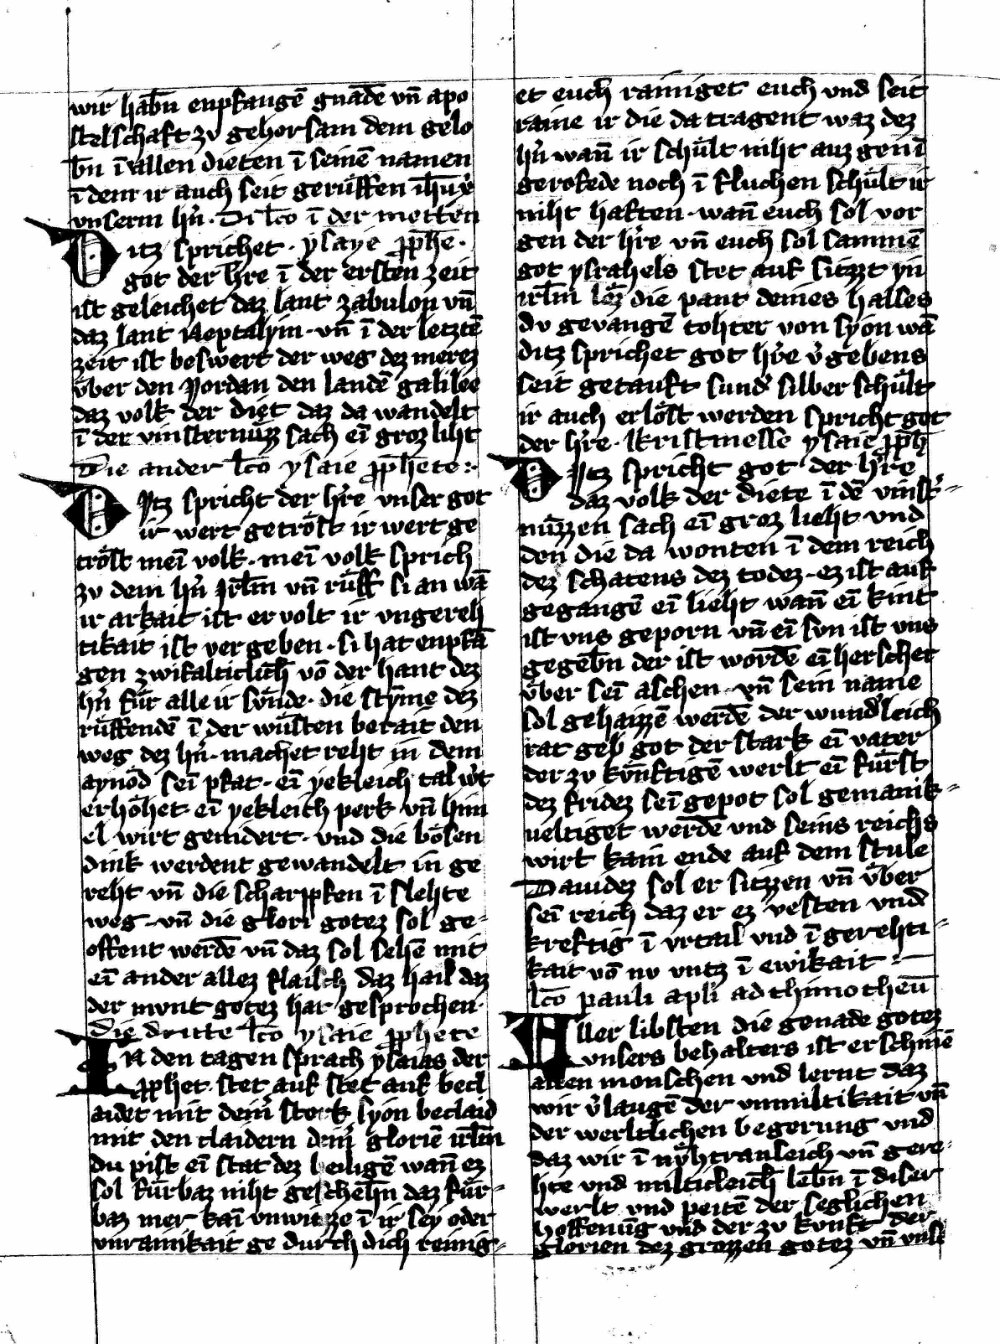 wir habn̄ enpfangē gnadē vn̄ apo
stelschaft zv gehorsam dem gelo
bn̄ ī allen dieten ī seinē namen
ī dem ir auch seit gerüffen
vnserm hn̄ · Di lcō ī der metten
Ditz sprichet · ysaye pph̄e ·
got der hre ī der ersten zeit
ist geleichet daz lant zabulon vn̄
daz lant Neptalym · vn̄ ī der letztē
zeit ist beswert der weg dez merez
über den Jordan den landē galilee
daz volk der diet daz da wandelt
ī der vinsternüzz sach eī groz liht
Die ander lcō ysaie pphete :·
DItz spricht der hr̄e vnser got
ir wert getröst ir wert ge
tröst meī volk · meī volk sprich
zv dem hn̄ Jrlm̄ vn̄ rüff si an wā
ir arkait ist er volt ir vngereh
tikait ist vergeben · si hat enpfā
gen zwifalticlich vō der hant dez
hn̄ für alle ir sünde · die stȳme dez
rüffendē ī der wüsten berait den
weg dez hn̄ · machet reht in dem
aynöd seī pfat · eī yekleich tal wt
erhöhet eī yekleich perk vn̄ hüu
el wirt genidert · vnd die bösen
dink werdent gewandelt in ge
reht vn̄ die scharppfen ī slehte
weg · vn̄ die glori gotez sol ge-
offent werdē vn̄ daz sol sehē mit
eī ander allez flaisch daz hail daz
der mvnt gotez har gesprochen ·
Die dritte lcō ysaie pphete
IN den tagen sprach ysaias der
pphet · stet auf stet auf becl
aidet mit deinr̄ sterk syon beclaid
mit den claidern deinr̄ gloriē irlm̄
du pist eī stat dez heiligē wan̄ ez
sol fürbaz niht geschehn̄ daz für-
baz mer kaī vnwitzze ī ir sey oder
vnrainikait ge durch dich reinig-
et euch rainiget euch vnd seit
raine ir die da tragent waz dez
hn̄ wan̄ ir schült niht auz gen ī
gerofede noch ī fluchen schült ir
niht haften · wan̄ euch sol vor
gen der hr̄e vn̄ euch sol samnē
got ysrahels stet auf sitzzt yn
irlm̄ löz die pant deines halses
dv gevangē tohter von syon wā
ditz sprichet got hr̄e vgebens
seit getauft sund silber schült
ir auch erlöst werden spricht got
der hr̄e · kristmesse ysaie pph
DItz spricht got der hr̄e
daz volk der diete ī dē vinst-
nüzzen sach eī groz lieht vnd
den die da wonten ī dem reich
dez schatens dez todez · ez ist auf
gegangē eī lieht wan̄ eī kint
ist vns geporn vn̄ eī svn ist vns
gegebn̄ der ist wordē eī herscher
über seī aschen · vn̄ sein name
sol gehaizzē werdē der wundleich
rat geb got der stark eī vater
der zv künftigē werlt eī fürst
dez fridez seī gepot sol gemanik-
ueltiget werdē vnd seins reichs
wirt kain ende auf dem stule
Dauidez sol er sitzzen vn̄ über
seī reich daz er ez vesten vnd
kreftig ī vrtail vnd ī gerehti-
kait vō nv vntz ī ewikait :—
lcō pauli apli ad thimotheū
Aller libsten die genade gotez
vnsers behalters ist erschinē
allen monschen vnd lernt daz
wir vlaugē der vnmiltikait vn̄
der werltlichen begerung vnd
daz wir ī nyhtranleich vn̄ gere-
hte vnd milticleich lebn̄ ī diser
werlt vnd peiten der seglichen
hoffenūg vnd der zv kvnft der
glorien dez grozzen gotez vn̄ vnse